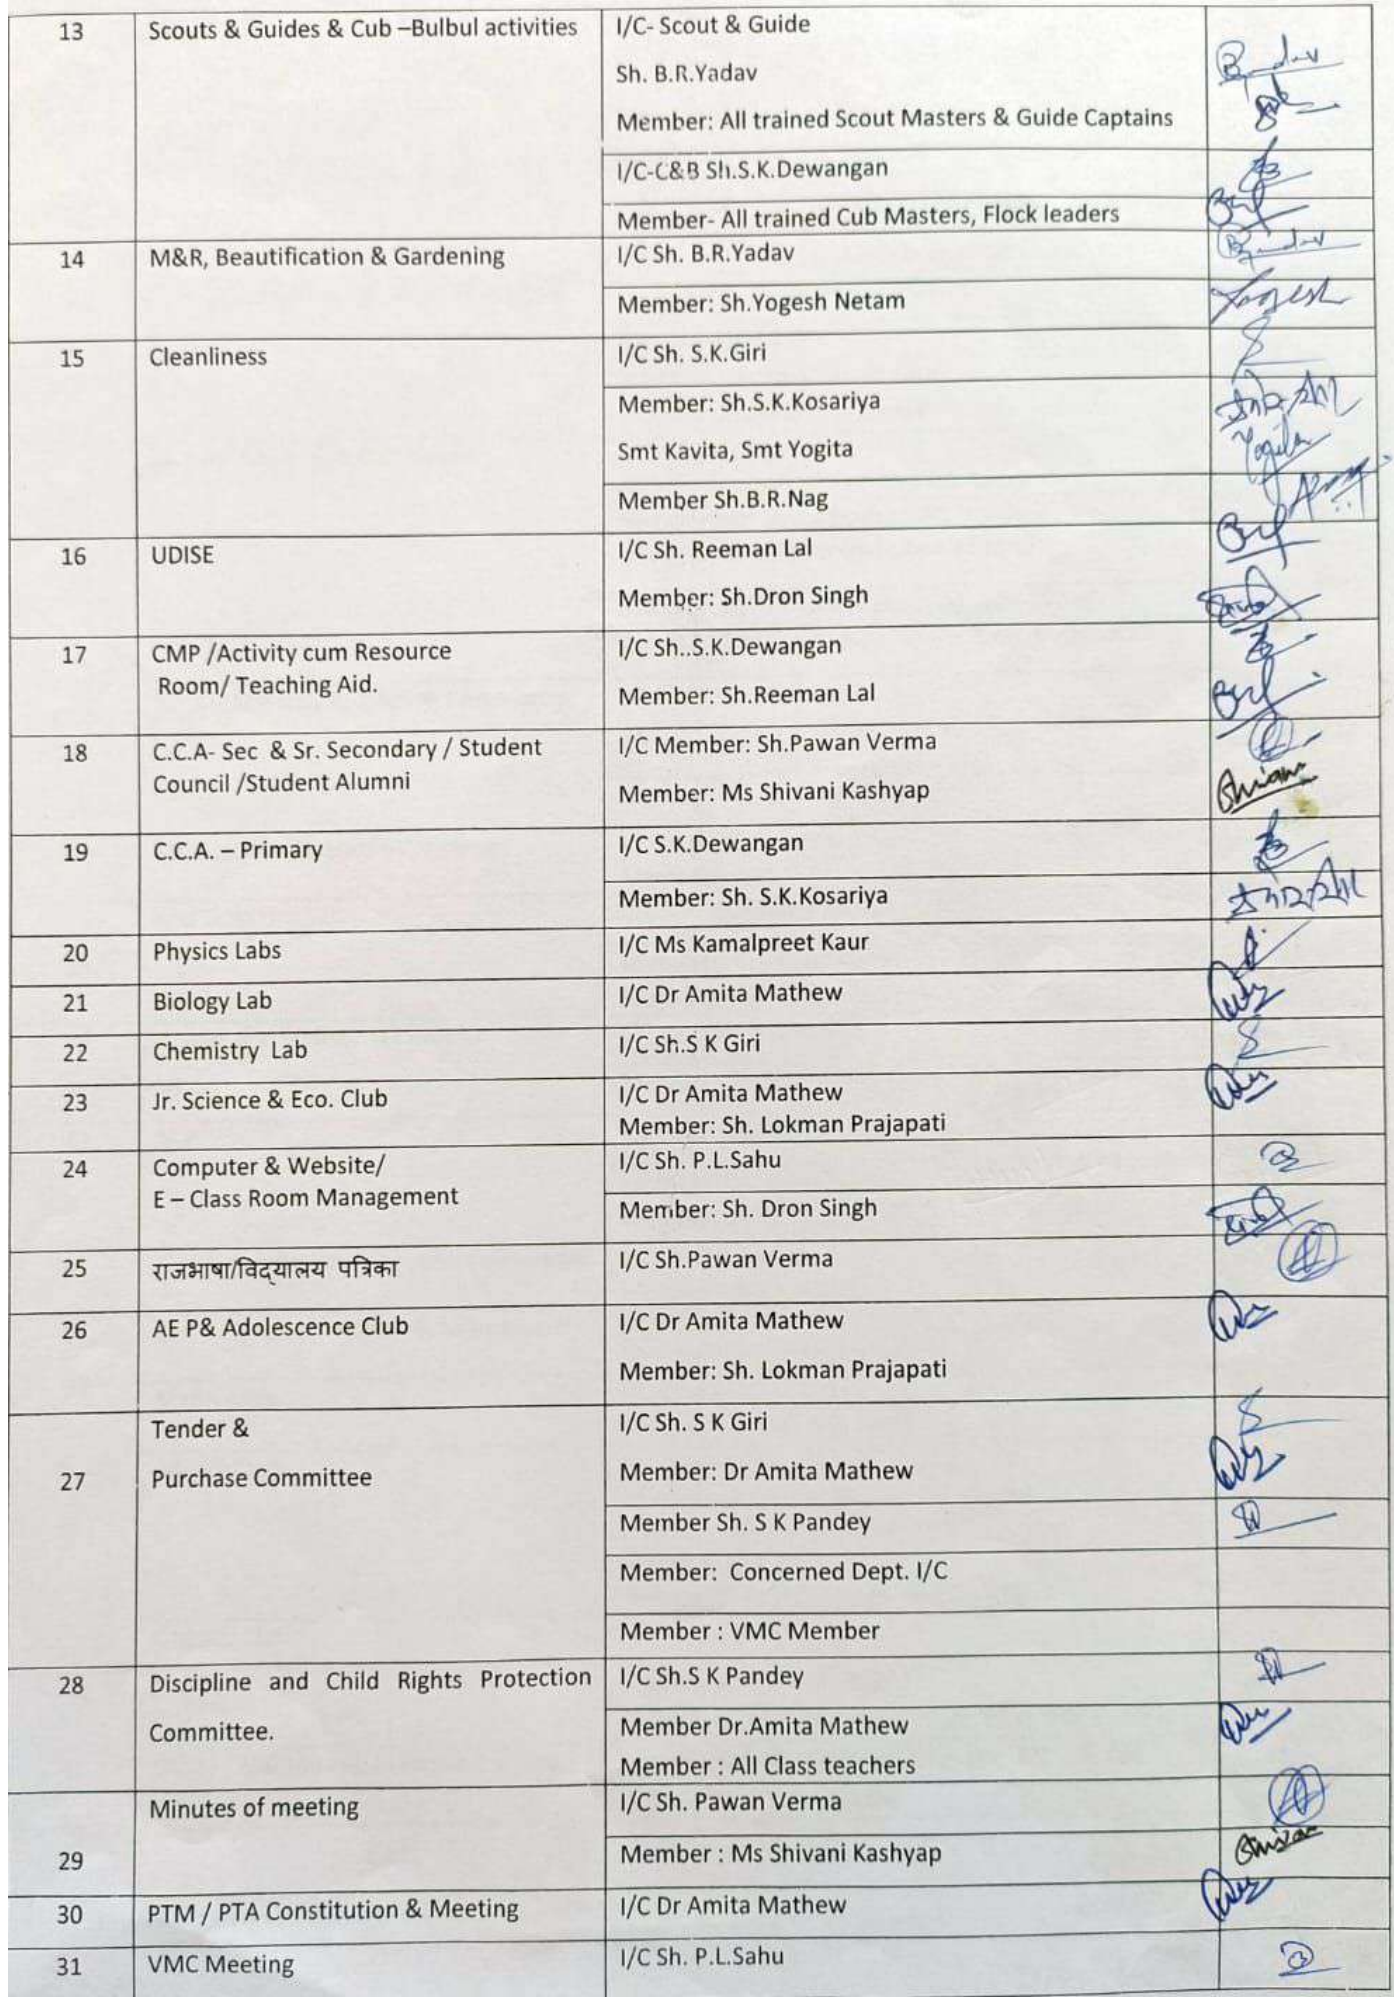 13 Scouts & Guides & Cub –Bulbul activities I/C- Scout & Guide
Sh. B.R.Yadav
Member: All trained Scout Masters & Guide Captains
I/C-C&B Sh.S.K.Dewangan
Member- All trained Cub Masters, Flock leaders
14 M&R, Beautification & Gardening I/C Sh. B.R.Yadav
Member: Sh.Yogesh Netam Yogesh
15 Cleanliness I/C Sh. S.K.Giri
Member: Sh.S.K.Kosariya
Smt Kavita, Smt Yogita Yogita
Member Sh.B.R.Nag
16 UDISE I/C Sh. Reeman Lal
Member: Sh.Dron Singh
17 CMP /Activity cum Resource I/C Sh..S.K.Dewangan
Room/ Teaching Aid. Member: Sh.Reeman Lal
18 C.C.A- Sec & Sr. Secondary / Student I/C Member: Sh.Pawan Verma
Council /Student Alumni Member: Ms Shivani Kashyap
19 C.C.A. – Primary I/C S.K.Dewangan
Member: Sh. S.K.Kosariya
20 Physics Labs I/C Ms Kamalpreet Kaur
21 Biology Lab I/C Dr Amita Mathew
22 Chemistry Lab I/C Sh.S K Giri
23 Jr. Science & Eco. Club I/C Dr Amita Mathew
Member: Sh. Lokman Prajapati
24 Computer & Website/ I/C Sh. P.L.Sahu
E – Class Room Management Member: Sh. Dron Singh
25 राजभाषा/विद्यालय पत्रिका I/C Sh.Pawan Verma
26 AE P& Adolescence Club I/C Dr Amita Mathew
Member: Sh. Lokman Prajapati
Tender & I/C Sh. S K Giri
27 Purchase Committee Member: Dr Amita Mathew
Member Sh. S K Pandey
Member: Concerned Dept. I/C
Member : VMC Member
28 Discipline and Child Rights Protection I/C Sh.S K Pandey
Committee. Member Dr.Amita Mathew
Member : All Class teachers
Minutes of meeting I/C Sh. Pawan Verma
29 Member : Ms Shivani Kashyap
30 PTM / PTA Constitution & Meeting I/C Dr Amita Mathew
31 VMC Meeting I/C Sh. P.L.Sahu